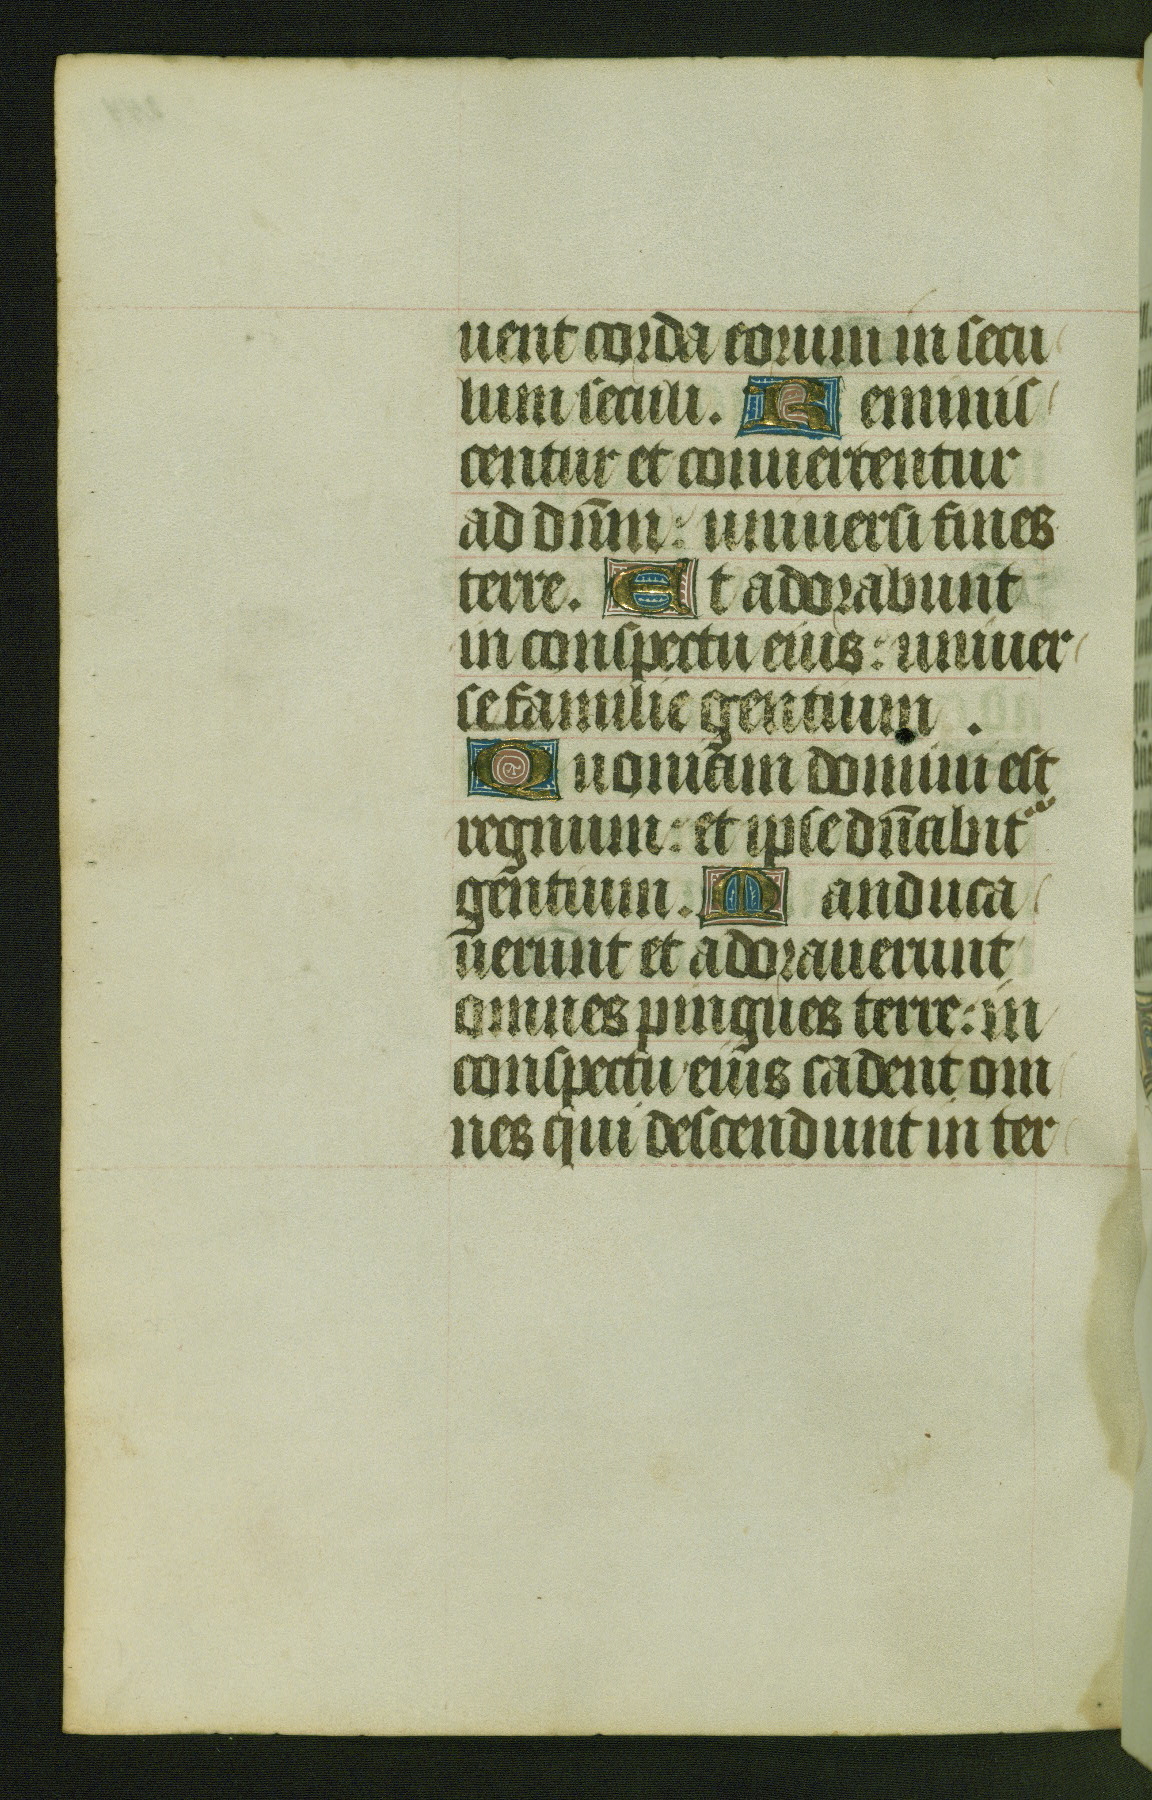 uent corda eorum in secu
lum seculi. Reminis
centur et conuertentur
ad dn̄m: uniuersi fines
terre. Et adorabunt
in conspectu eius: uniuer
se familie gentium.
Quoniam domini est
regnum: et ipse dn̄abit
gentium. Manduca
uerunt et adorauerunt
omnes pingues terre: in
conspectu eius cadent om
nes qui descendunt in ter